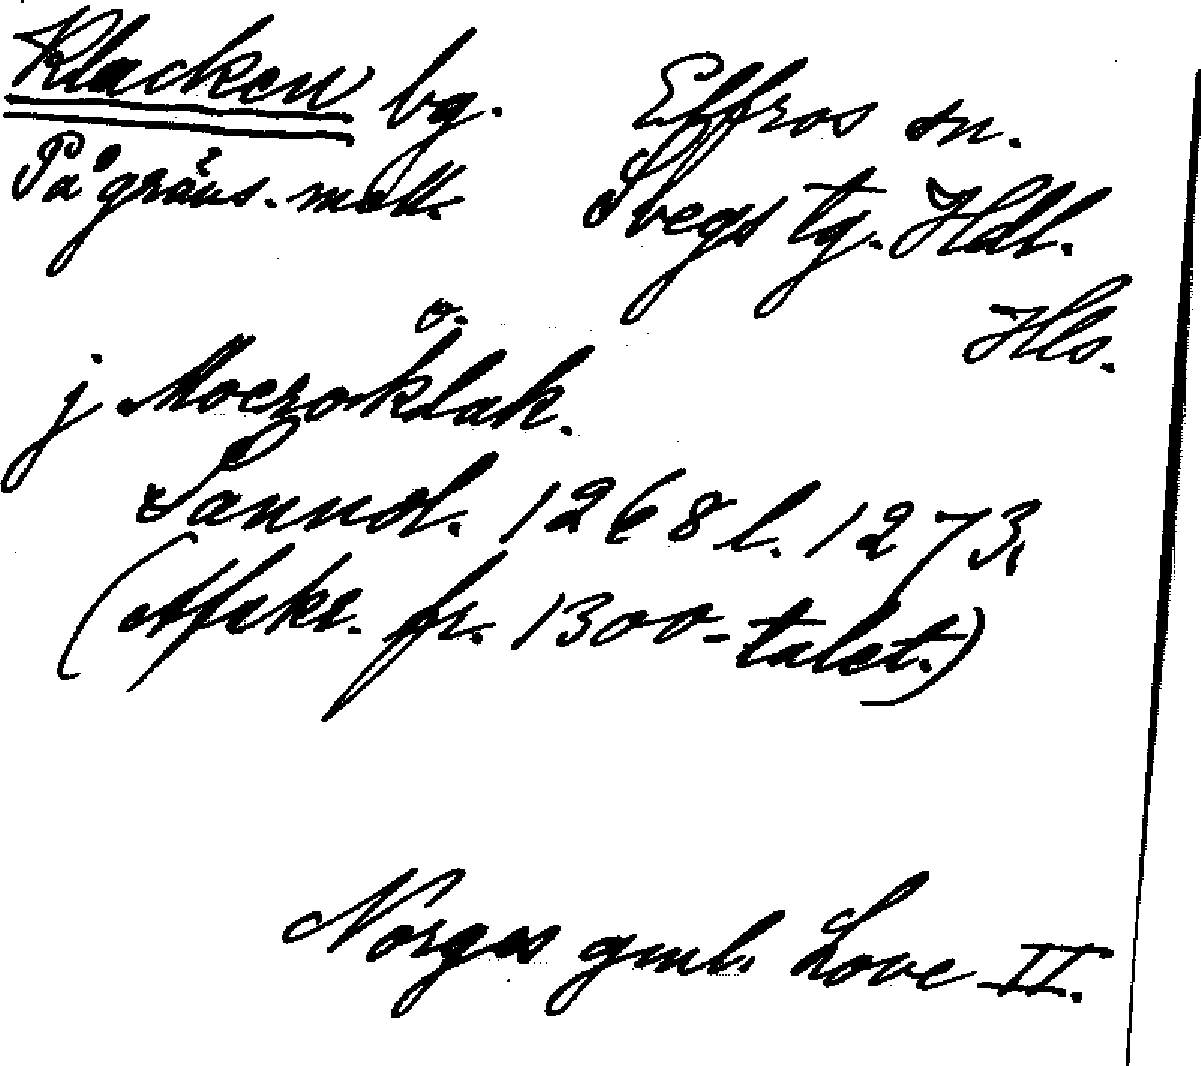 Klacken bg. Elfros sn.
På gräns. mell. Svegs tg. Hdl.
o. Hls.
j Moeroklak.
Sannol. 1268 l. 1273,
(Afskr. fr. 1300-talet.)
Norges gml. Love II.